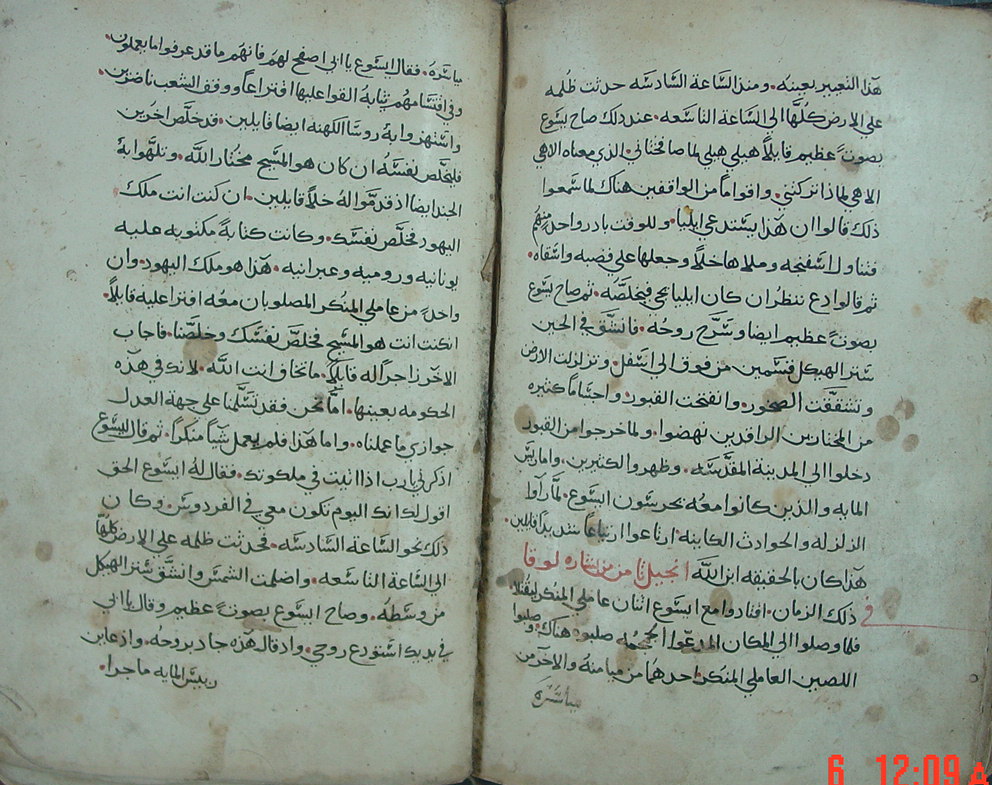 هذا التعبير بعينه. ومنذ الساعة السادسه حدثت ظلمه
علي الارض كلها الي الساعة التاسعه. عند ذلك صاح يسوع
بصوت عظيم قايلاً هيلي هيلي لما صافختاني. الذي معناه الاهي
الاهي لماذا تركتني. واقواماً من الواقفين هناك لما سمعوا
ذلك قالوا ان هذا يستدعي ايليا. وللوقت بادر واحد منهم
فتناول اسفنجه وملاها خلاً وجعلها علي قصبه واسقاه.
ثم قالوا دع ننظر ان كان ايليا يجي فيخلصه. ثم صاح يسوع
بصوت عظيم ايضا وسرح روحه. فانشق في الحين
ستر الهيكل قسمين من فوق الي اسفل. وتزلزلت الارض
وتشققت الصخور. وانفتحت القبور. واجساماً كثيره
من المختارين الراقدين نهضوا. ولما خرجوا من القبور
دخلوا الي المدينة المقدسه. وظهروا لكثيرين. واما ريس
المايه والذين كانوا معه يحرسون ايسوع. لما راوا
الزلزله والحوادث الكاينه ارتاعوا ارتياعاً شديداً قايلين.
هذا كان بالحقيقه ابن الله انجيل ثامن من بشاره لوقا
في ذلك الزمان. اقتادوا مع ايسوع اثنان عاملي المنكر ليقتلا
فلما وصلوا الي المكان المدعوا الجمجمه صلبوه هناك. وصلبوا
اللصين العاملي المنكر احدهما من ميامنه والاخر من
مياسره
مياسره. فقال ايسوع يا ابي اصفح لهم فانهم ما قد عرفوا ما يعملون.
وفي اقتسامهم ثيابه القوا عليها اقتراعاً ووقف الشعب ناضرين.
واستهزوا به روسا الكهنه ايضا قايلين. قد خلص اخرين
فليخلص نفسه ان كان هو المسيح مختار الله. وتلهوا به
الجند ايضا اذ قدموا له خلاً قايلين. ان كنت انت ملك
اليهود فخلص نفسك. وكانت كتابة مكتوبه عليه
يونانيه وروميه وعبرانيه. هذا هو ملك اليهود. وان
واحد من عاملي المنكر المصلوبان معه افترا عليه قايلاً.
ان كنت انت هو المسيح فخلص نفسك وخلصنا. فاجاب
الاخر زاجراً له قايلاً. ما تخاف انت الله. لانك في هذه
الحكومه بعينها. اما نحن فقد تسلمنا علي جهة العدل
جوازي ما عملناه. واما هذا فلم يعمل شياً منكراً. ثم قال ليسوع
اذكرني يا رب اذا اتيت في ملكوتك. فقال له ايسوع الحق
اقول لك انك اليوم تكون معي في الفردوس. وكان
ذلك نحو الساعة السادسه. فحدثت ظلمه علي الارض كلها
الي الساعة التاسعه. واضلمت الشمس وانشق ستر الهيكل
من وسطه. وصاح ايسوع بصوت عظيم وقال يا ابي
في يديك استودع روحي. واذ قال هذه جاد بروحه. واذ عاين
ريس المايه ما جرا.
6 12:09 A